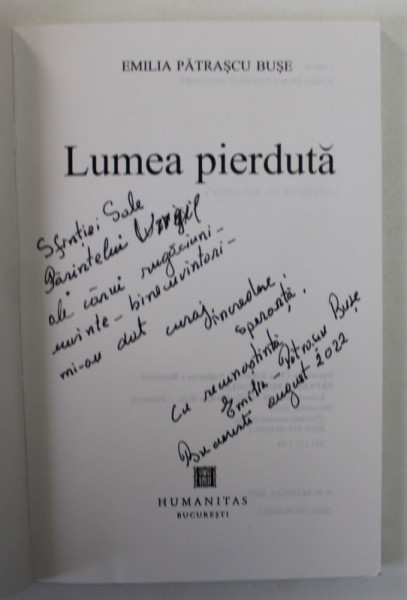 EMILIA PĂTRAȘCU BUȘE
Lumea pierdută
Sfinției Sale
Părintelui Virgil
ale cărui rugăciuni -
cuvinte - binecuvîntări -
mi-au dat curaj, încredere,
speranță,
Cu recunoștință
Emilia - Pătrașcu Bușe
București august 2022
HUMANITAS
BUCUREȘTI